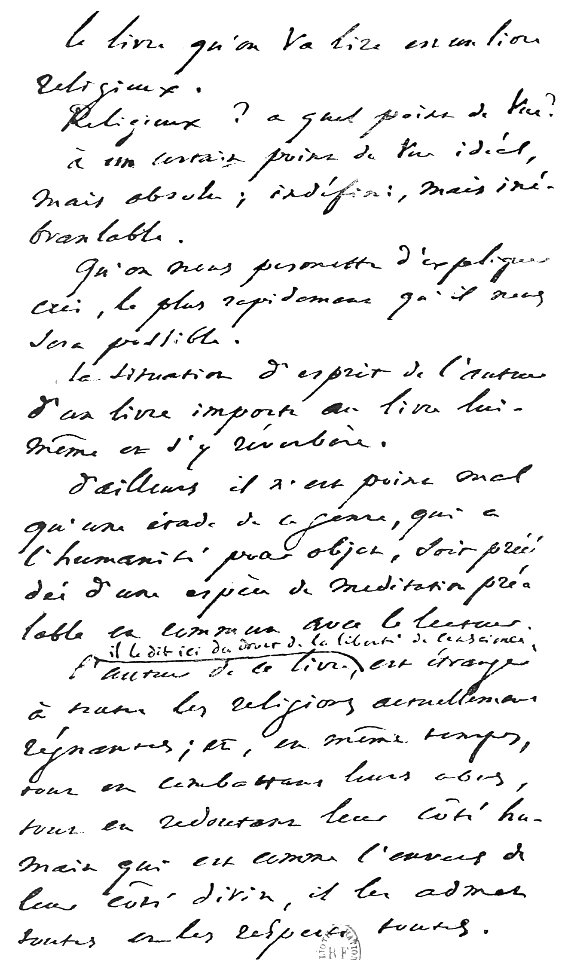 le livre qu'on va lire est un livre
religieux.
Religieux ? a quel point de vue?
à un certain point de vue idéal,
mais absolu ; indéfini, mais iné-
branlable.
Qu'on nous permette d'expliquer
ceci, le plus rapidement qu'il nous
sera possible.
la situation d'esprit de l'auteur
d'un livre importe au livre lui-
même et s'y réverbère.
d'ailleurs il n'est point mal
qu'une étude de ce genre, qui a
l'humanité pour objet, soit précé
dée d'une espèce de meditation préa
lable en commun avec le lecteur.
il le dit ici du droit de la liberté de conscience,
l'auteur de ce livre, est étranger
à toutes les religions actuellement
régnantes ; et, en même temps,
tout en combattant leurs abus,
tout en redoutant leur côté hu-
main qui est comme l'envers de
leur côté divin, il les admet
toutes et les respecte toutes.